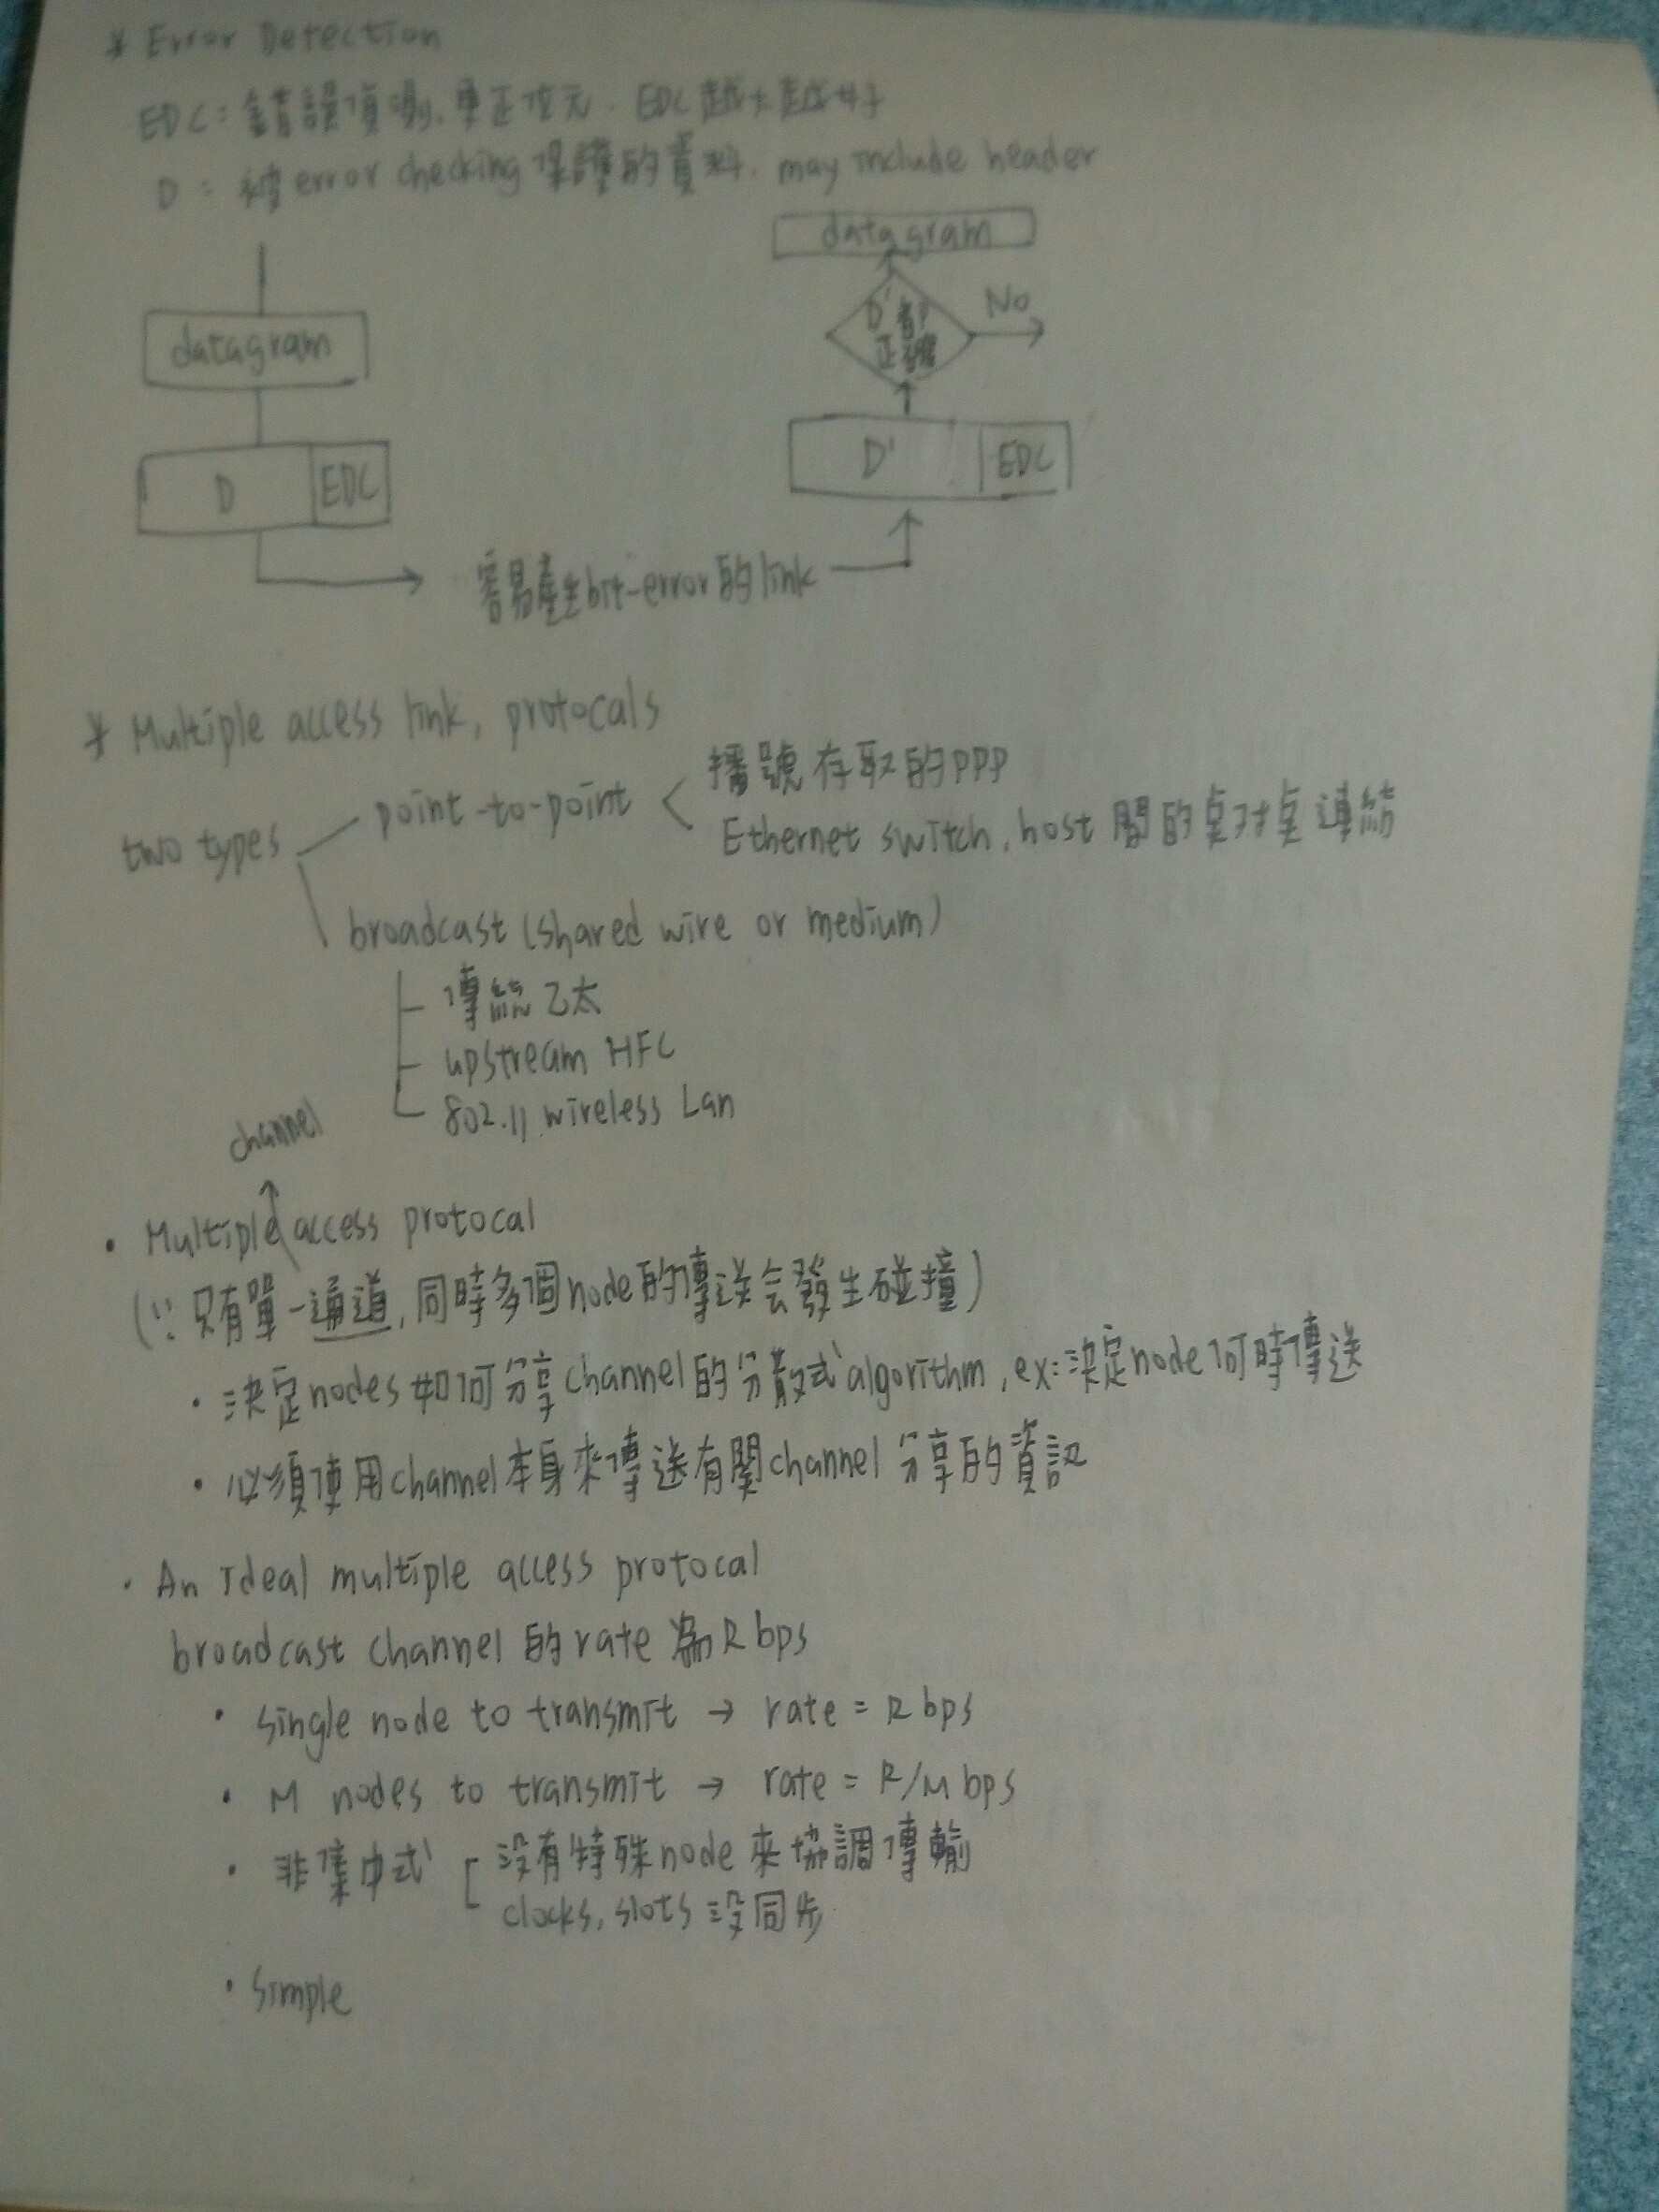 * Error Detection
EDC: 錯誤偵測、更正位元. EDC越大越好
D: 被error checking保護的資料. may include header
datagram
D'都正確
No
datagram
D' EDC
D EDC
容易產生bit-error的link
* Multiple access link, protocals
two types
point-to-point
播號存取的PPP
Ethernet switch, host 間的桌对桌連結
broadcast (shared wire or medium)
傳統乙太
upstream HFC
802.11 wireless Lan
channel
• Multiple access protocal
(∵只有單一通道, 同時多個node的傳送会發生碰撞)
• 決定nodes如何分享channel的分散式algorithm, ex:決定node何時傳送
• 必須使用channel本身來傳送有關channel分享的資訊
• An Ideal multiple access protocal
broadcast channel 的rate 為R bps
• single node to transmit → rate = R bps
• M nodes to transmit → rate = R/M bps
• 非集中式 [ 沒有特殊node來協調傳輸
clocks, slots 沒同步
• Simple